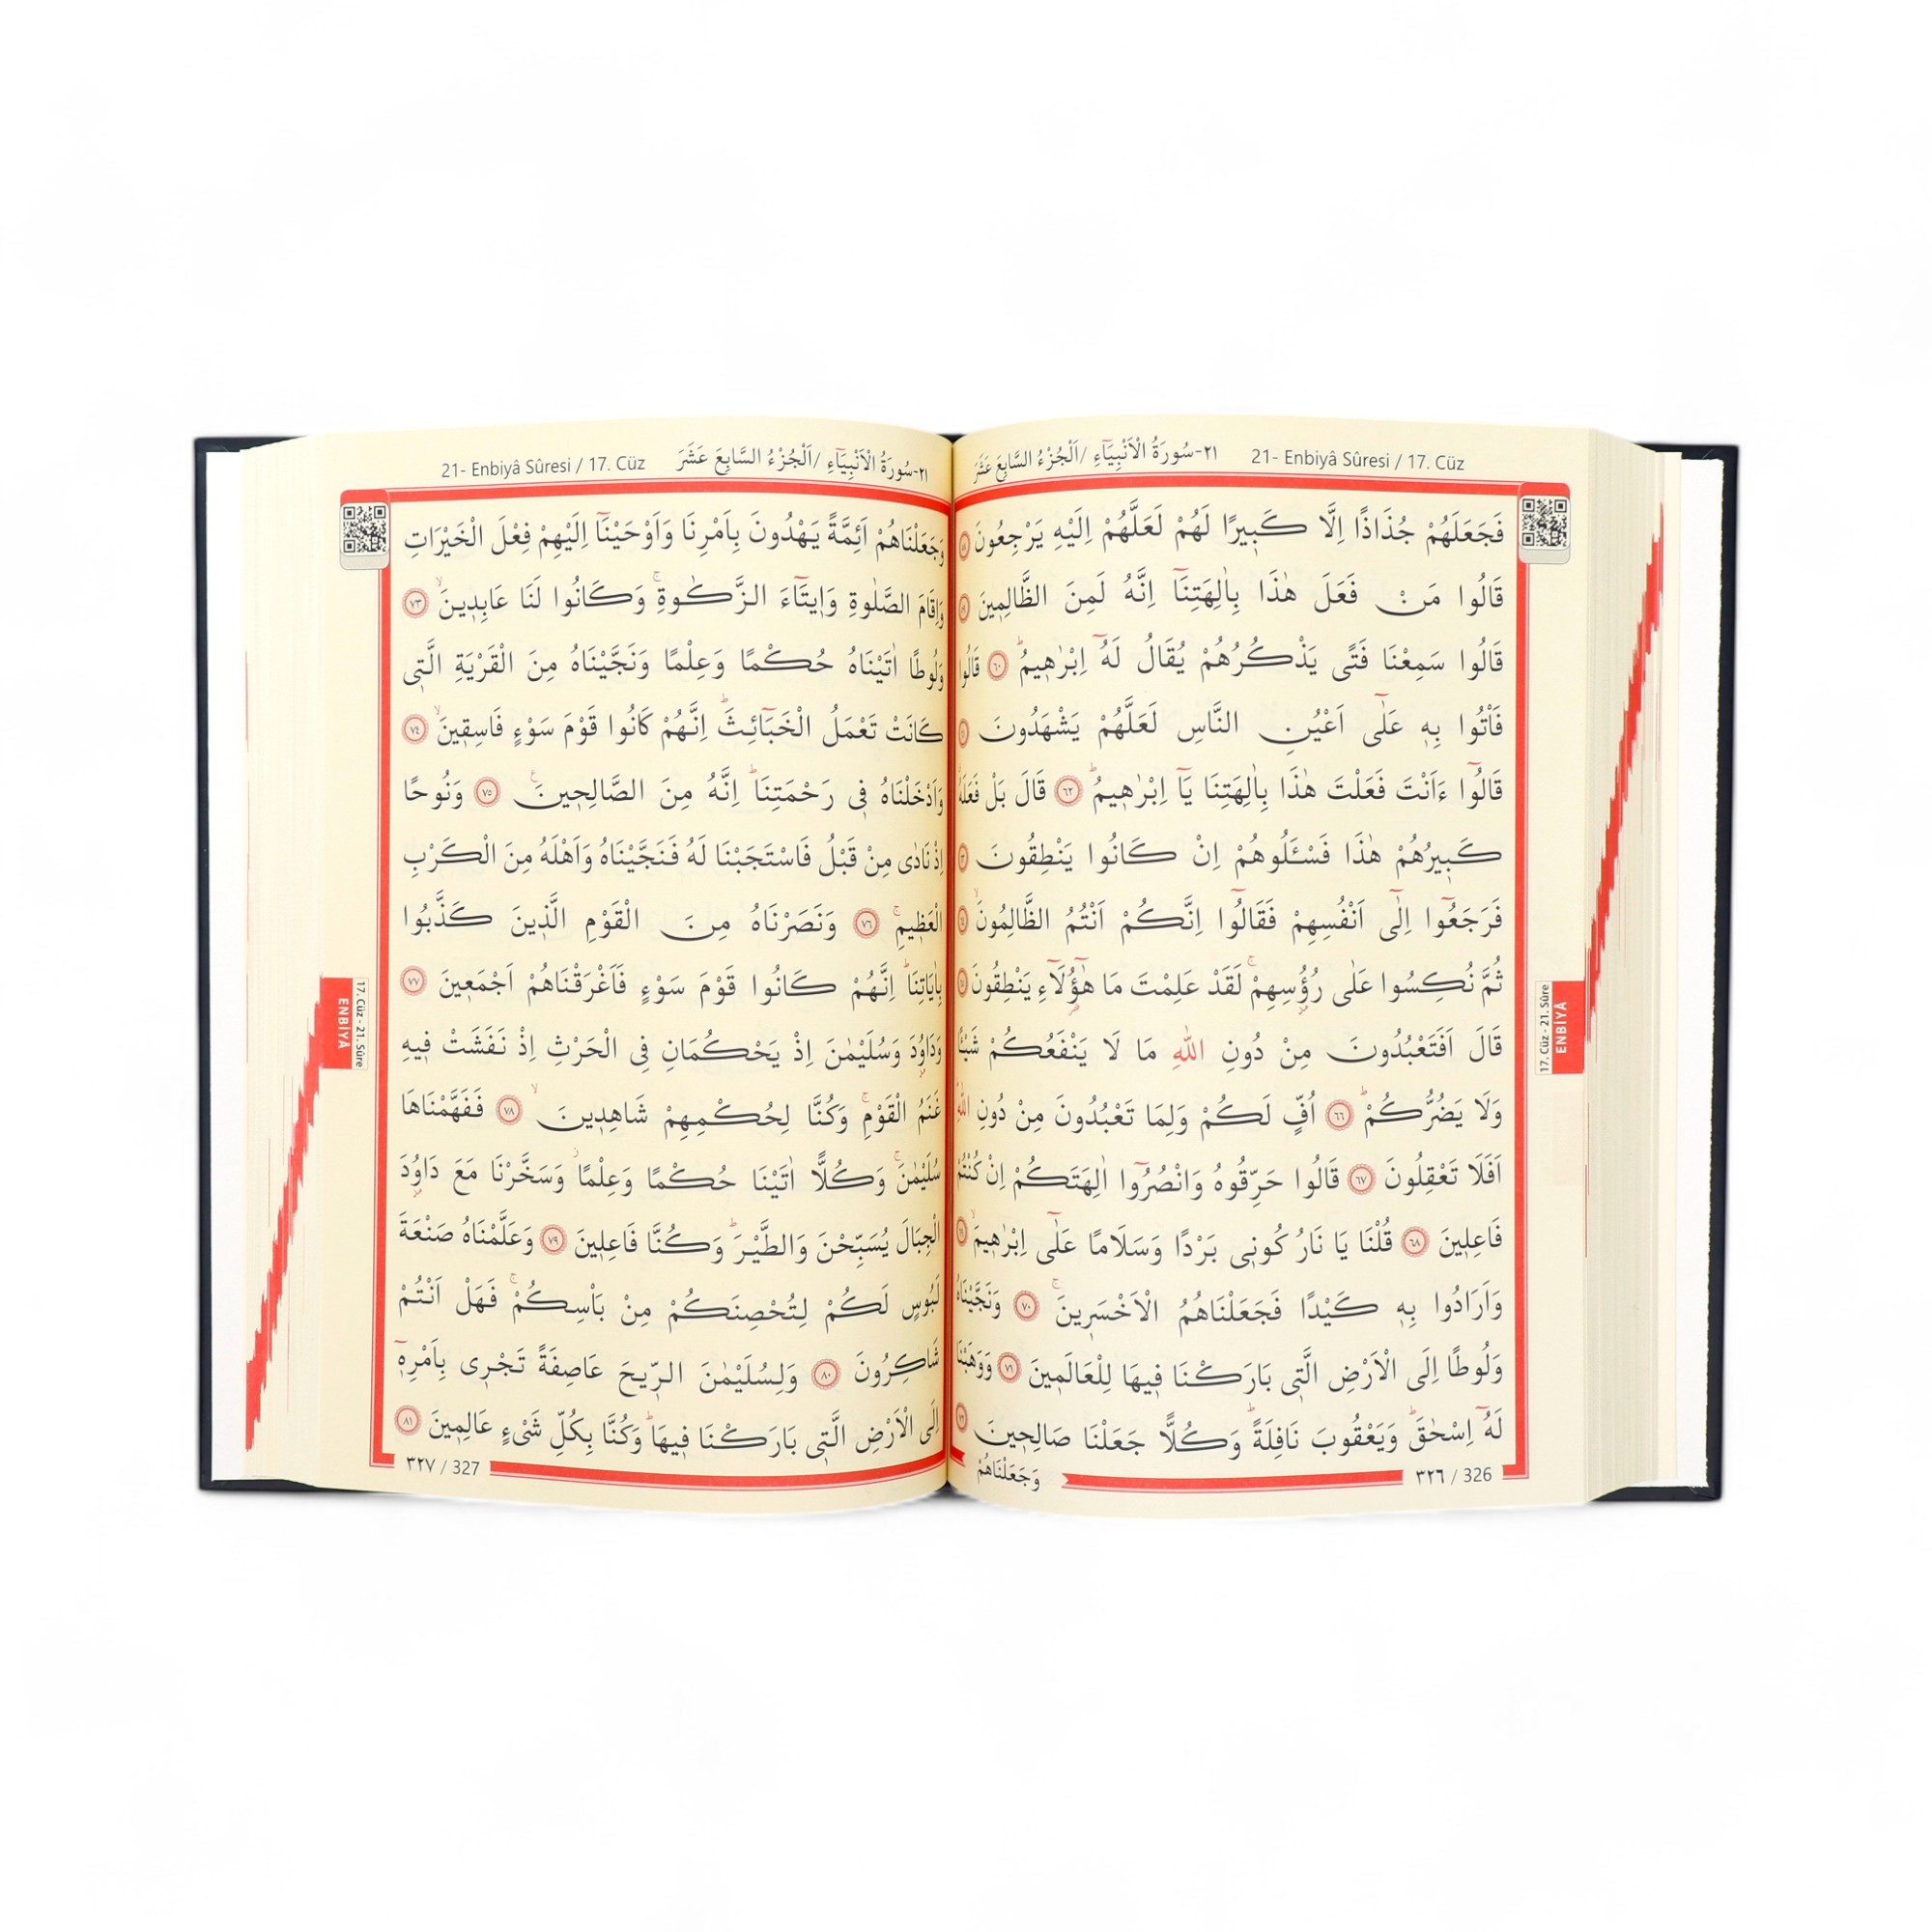 ٢١-سُورَةُ الْاَنْبِيَٓاءِ /اَلْجُزْءُ السَّابِعَ عَشَرَ
21- Enbiyâ Sûresi / 17. Cüz
فَجَعَلَهُمْ جُذَاذًا اِلَّا كَب۪يرًا لَهُمْ لَعَلَّهُمْ اِلَيْهِ يَرْجِعُونَ ٥٨
قَالُوا مَنْ فَعَلَ هٰذَا بِاٰلِهَتِنَٓا اِنَّهُ لَمِنَ الظَّالِم۪ينَ ٥٩
قَالُوا سَمِعْنَا فَتًى يَذْكُرُهُمْ يُقَالُ لَهُٓ اِبْرٰه۪يمُۜ ٦٠ قَالُوا
فَأْتُوا بِه۪ عَلٰٓى اَعْيُنِ النَّاسِ لَعَلَّهُمْ يَشْهَدُونَ ٦١
قَالُٓوا ءَاَنْتَ فَعَلْتَ هٰذَا بِاٰلِهَتِنَا يَٓا اِبْرٰه۪يمُۜ ٦٢ قَالَ بَلْ فَعَلَهُۗ
كَب۪يرُهُمْ هٰذَا فَسْـَٔلُوهُمْ اِنْ كَانُوا يَنْطِقُونَ ٦٣
فَرَجَعُٓوا اِلٰٓى اَنْفُسِهِمْ فَقَالُٓوا اِنَّكُمْ اَنْتُمُ الظَّالِمُونَۙ ٦٤
ثُمَّ نُكِسُوا عَلٰى رُؤُ۫سِهِمْۚ لَقَدْ عَلِمْتَ مَا هٰٓؤُ۬لَٓاءِ يَنْطِقُونَ ٦٥
قَالَ اَفَتَعْبُدُونَ مِنْ دُونِ اللّٰهِ مَا لَا يَنْفَعُكُمْ شَيْـًٔا
وَلَا يَضُرُّكُمْۜ ٦٦ اُفٍّ لَكُمْ وَلِمَا تَعْبُدُونَ مِنْ دُونِ اللّٰهِۜ
اَفَلَا تَعْقِلُونَ ٦٧ قَالُوا حَرِّقُوهُ وَانْصُرُٓوا اٰلِهَتَكُمْ اِنْ كُنْتُمْ
فَاعِل۪ينَ ٦٨ قُلْنَا يَا نَارُ كُون۪ي بَرْدًا وَسَلَامًا عَلٰٓى اِبْرٰه۪يمَۙ ٦٩
وَاَرَادُوا بِه۪ كَيْدًا فَجَعَلْنَاهُمُ الْاَخْسَر۪ينَۚ ٧٠ وَنَجَّيْنَاهُ
وَلُوطًا اِلَى الْاَرْضِ الَّت۪ي بَارَكْنَا ف۪يهَا لِلْعَالَم۪ينَ ٧١ وَوَهَبْنَا
لَهُٓ اِسْحٰقَۜ وَيَعْقُوبَ نَافِلَةًۜ وَكُلًّا جَعَلْنَا صَالِح۪ينَ ٧٢
وَجَعَلْنَاهُمْ
٣٢٦ / 326
17. Cüz - 21. Sûre
ENBİYÂ
٢١-سُورَةُ الْاَنْبِيَٓاءِ /اَلْجُزْءُ السَّابِعَ عَشَرَ
21- Enbiyâ Sûresi / 17. Cüz
وَجَعَلْنَاهُمْ اَئِمَّةً يَهْدُونَ بِاَمْرِنَا وَاَوْحَيْنَٓا اِلَيْهِمْ فِعْلَ الْخَيْرَاتِ
وَاِقَامَ الصَّلٰوةِ وَا۪يتَٓاءَ الزَّكٰوةِۚ وَكَانُوا لَنَا عَابِد۪ينَۙ ٧٣
وَلُوطًا اٰتَيْنَاهُ حُكْمًا وَعِلْمًا وَنَجَّيْنَاهُ مِنَ الْقَرْيَةِ الَّت۪ي
كَانَتْ تَعْمَلُ الْخَبَٓائِثَۜ اِنَّهُمْ كَانُوا قَوْمَ سَوْءٍ فَاسِق۪ينَۙ ٧٤
وَاَدْخَلْنَاهُ ف۪ي رَحْمَتِنَاۜ اِنَّهُ مِنَ الصَّالِح۪ينَ۟ ٧٥ وَنُوحًا
اِذْ نَادٰى مِنْ قَبْلُ فَاسْتَجَبْنَا لَهُ فَنَجَّيْنَاهُ وَاَهْلَهُ مِنَ الْكَرْبِ
الْعَظ۪يمِۚ ٧٦ وَنَصَرْنَاهُ مِنَ الْقَوْمِ الَّذ۪ينَ كَذَّبُوا
بِاٰيَاتِنَاۜ اِنَّهُمْ كَانُوا قَوْمَ سَوْءٍ فَاَغْرَقْنَاهُمْ اَجْمَع۪ينَ ٧٧
وَدَاوُ۫دَ وَسُلَيْمٰنَ اِذْ يَحْكُمَانِ فِي الْحَرْثِ اِذْ نَفَشَتْ ف۪يهِ
غَنَمُ الْقَوْمِۚ وَكُنَّا لِحُكْمِهِمْ شَاهِد۪ينَۙ ٧٨ فَفَهَّمْنَاهَا
سُلَيْمٰنَۚ وَكُلًّا اٰتَيْنَا حُكْمًا وَعِلْمًاۘ وَسَخَّرْنَا مَعَ دَاوُ۫دَ
الْجِبَالَ يُسَبِّحْنَ وَالطَّيْرَۜ وَكُنَّا فَاعِل۪ينَ ٧٩ وَعَلَّمْنَاهُ صَنْعَةَ
لَبُوسٍ لَكُمْ لِتُحْصِنَكُمْ مِنْ بَأْسِكُمْۚ فَهَلْ اَنْتُمْ
شَاكِرُونَ ٨٠ وَلِسُلَيْمٰنَ الرّ۪يحَ عَاصِفَةً تَجْر۪ي بِاَمْرِه۪ٓ
اِلَى الْاَرْضِ الَّت۪ي بَارَكْنَا ف۪يهَاۜ وَكُنَّا بِكُلِّ شَيْءٍ عَالِم۪ينَ ٨١
٣٢٧ / 327
17. Cüz - 21. Sûre
ENBİYÂ